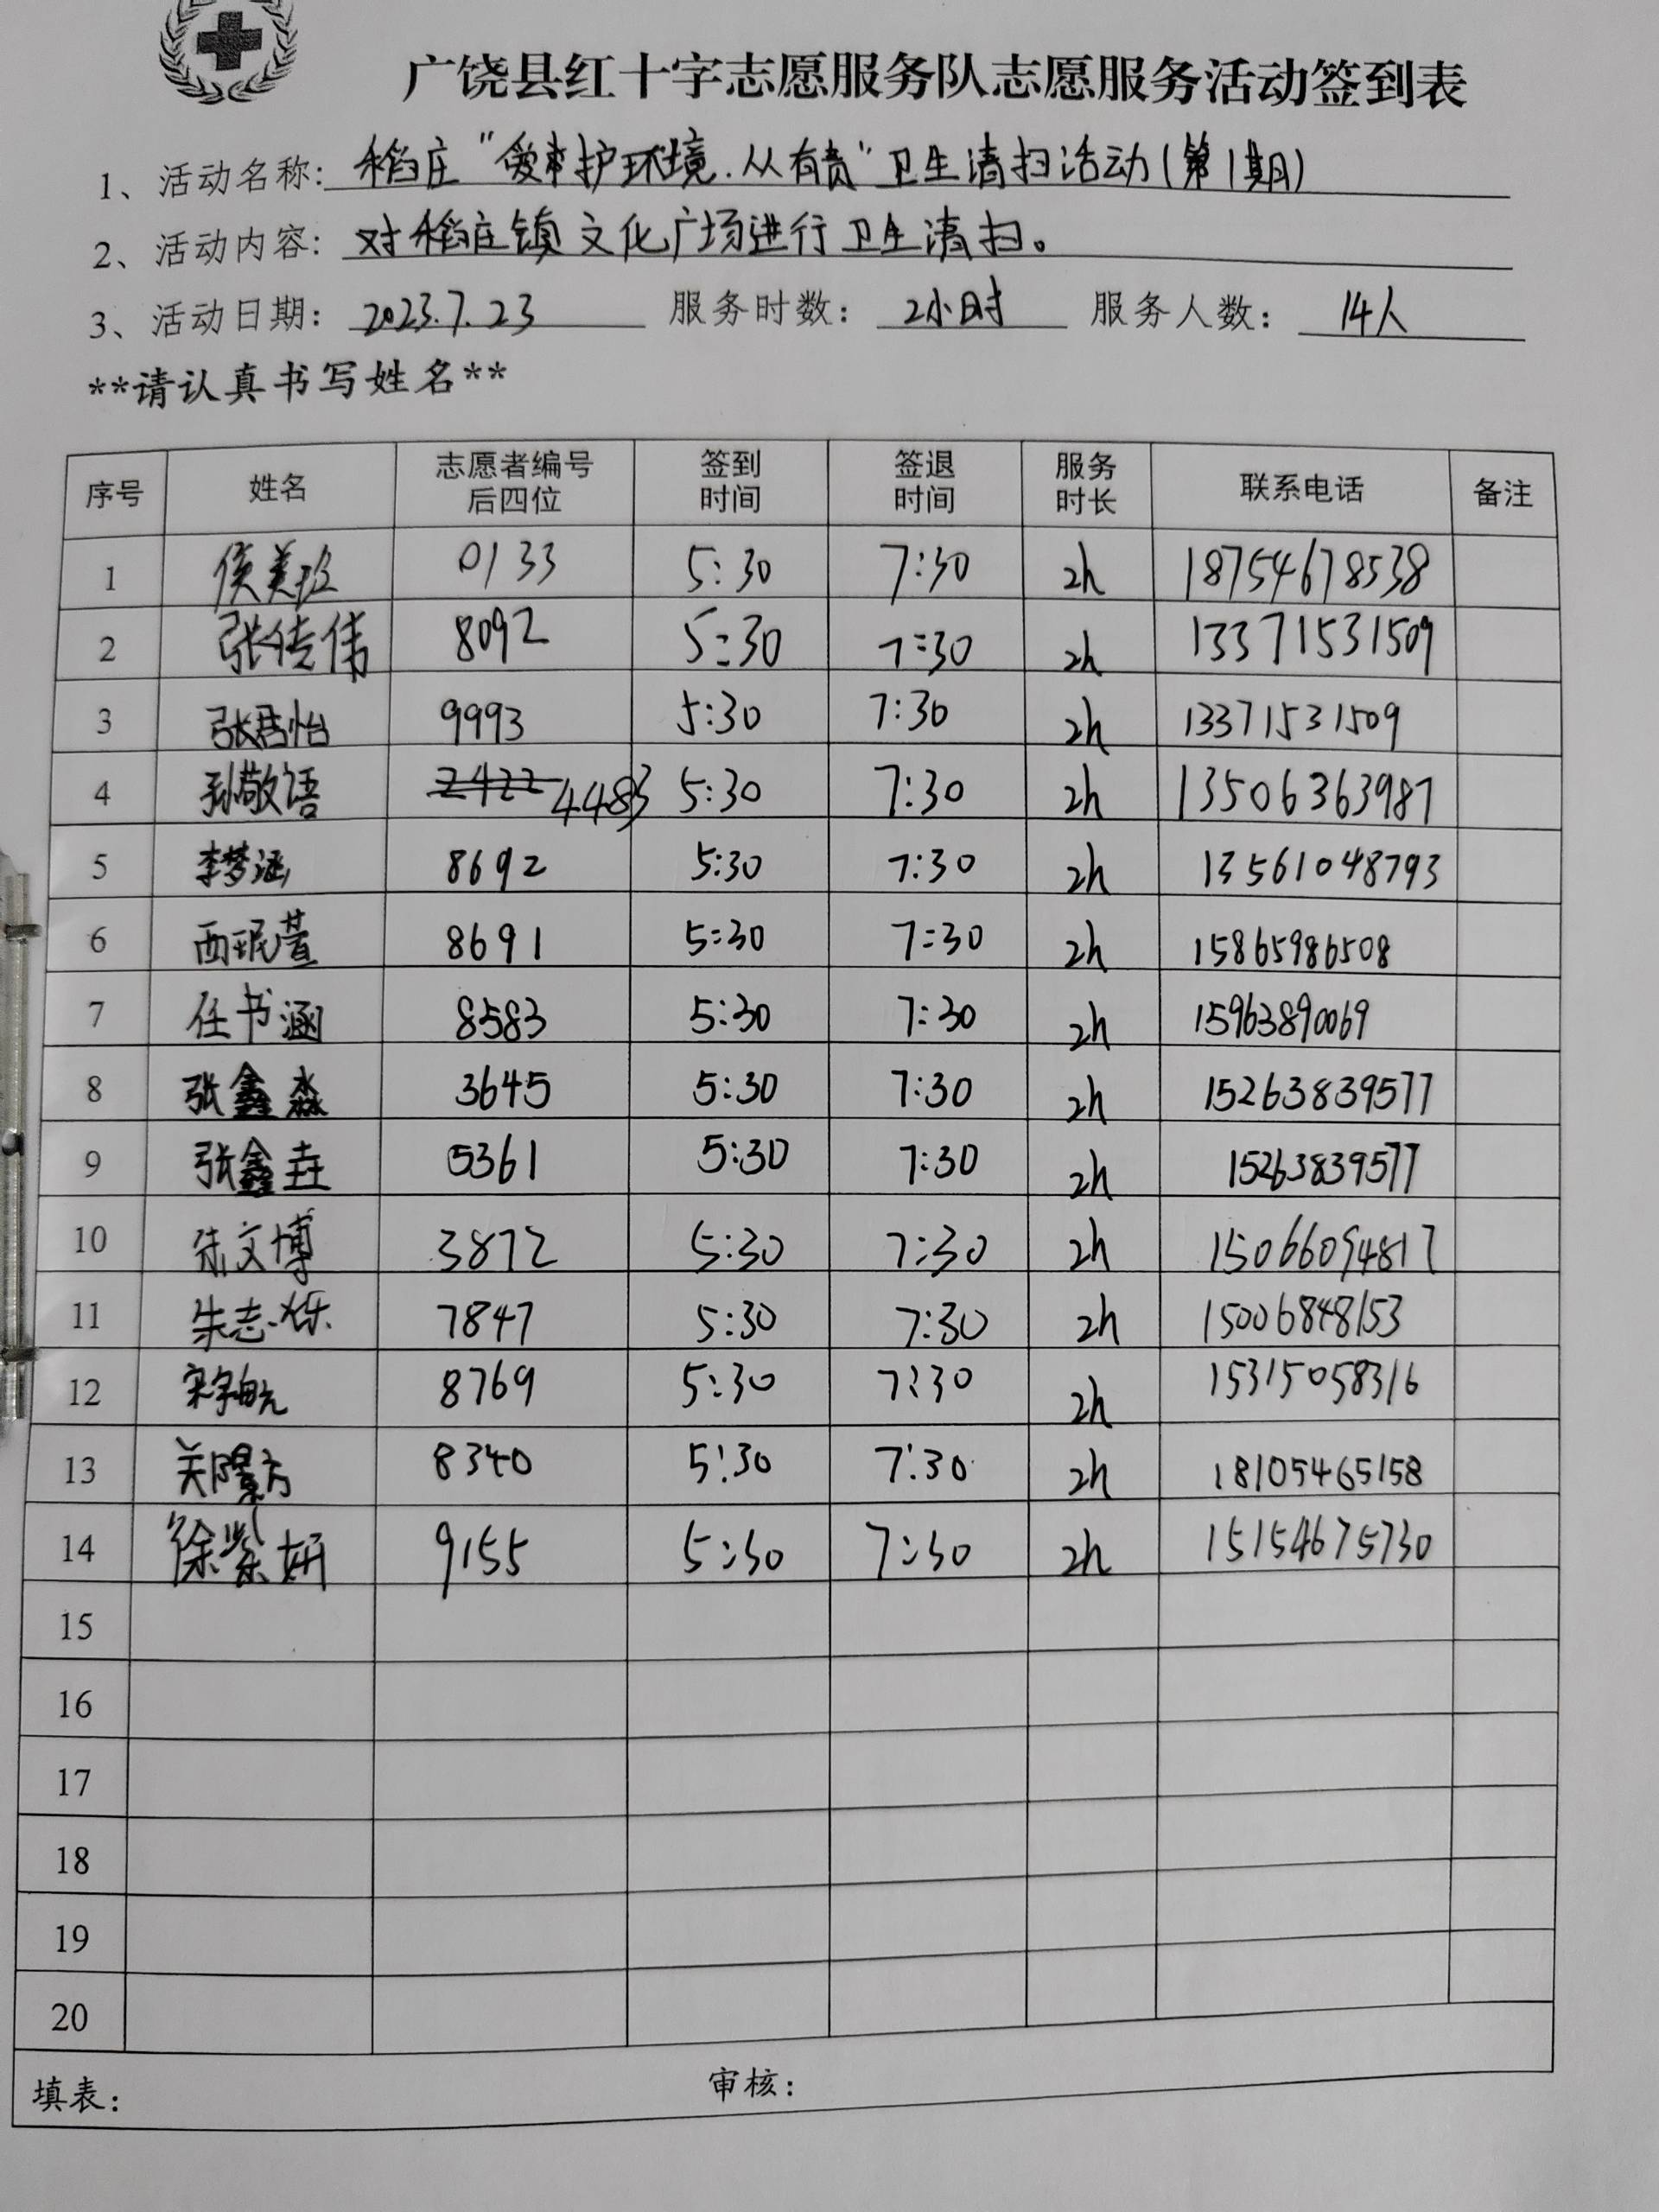 广饶县红十字志愿服务队志愿服务活动签到表
1、活动名称: 稻庄“爱护环境.从有责”卫生清扫活动(第1期)
2、活动内容: 对稻庄镇文化广场进行卫生清扫。
3、活动日期: 2023.7.23 服务时数: 2小时 服务人数: 14人
**请认真书写姓名**
序号 姓名 志愿者编号后四位 签到时间 签退时间 服务时长 联系电话 备注
1 侯美 0133 5:30 7:30 2h 18754678538
2 张传伟 8092 5:30 7:30 2h 13371531509
3 张君怡 9993 5:30 7:30 2h 13371531509
4 孙敬语 2422 4483 5:30 7:30 2h 13506363987
5 李梦涵 8692 5:30 7:30 2h 13561048793
6 西珉萱 8691 5:30 7:30 2h 15865986508
7 任书涵 8583 5:30 7:30 2h 15963890069
8 张鑫淼 3645 5:30 7:30 2h 15263839577
9 张鑫垚 5361 5:30 7:30 2h 15263839577
10 朱文博 3872 5:30 7:30 2h 15066094817
11 朱志烁 7847 5:30 7:30 2h 15006848153
12 宋宇皓 8769 5:30 7:30 2h 15315058316
13 关方 8340 5:30 7:30 2h 18105465158
14 徐紫妍 9155 5:30 7:30 2h 15154675730
15
16
17
18
19
20
填表: 审核: